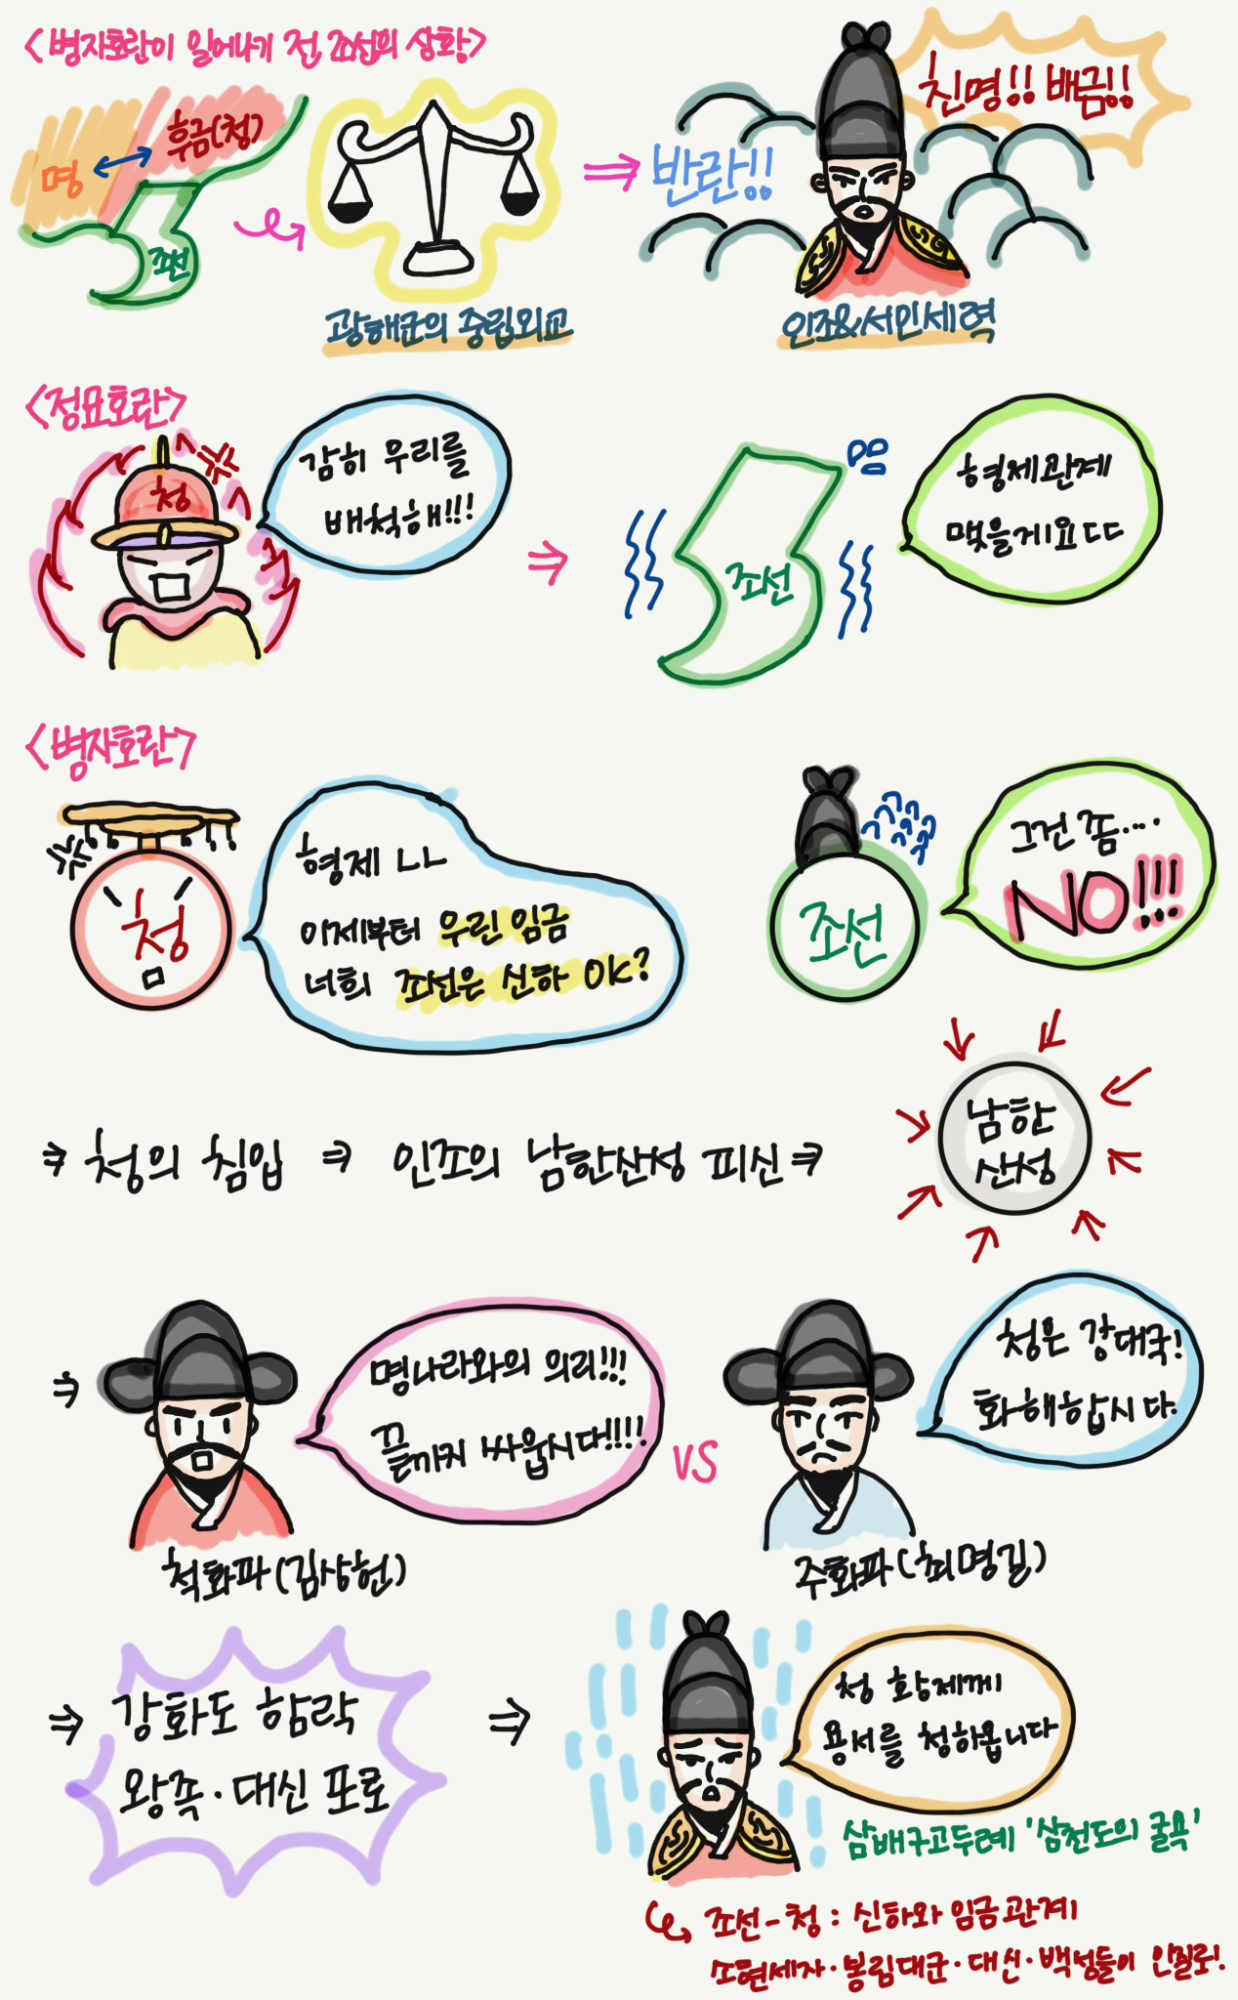 <병자호란이 일어나기 전, 조선의 상황>
명
후금(청)
조선
광해군의 중립외교
반란!!
친명!! 배금!!
인조&서인세력
<정묘호란>
청
감히 우리를
배척해!!!
조선
음
형제관계
맺을게요ㄷㄷ
<병자호란>
청
형제 ㄴㄴ
이제부터 우린 임금
너희 조선은 신하 OK?
조선
그건 좀....
NO!!!
⇒ 청의 침입 ⇒ 인조의 남한산성 피신 ⇒
남한
산성
⇒
명나라와의 의리!!!
끝까지 싸웁시다!!!!
척화파(김상헌)
VS
청은 강대국!
화해합시다.
주화파(최명길)
⇒ 강화도 함락
왕족·대신 포로
⇒
청 황제께
용서를 청하옵니다
삼배구고두례 '삼전도의 굴욕'
조선-청 : 신하와 임금관계
소현세자·봉림대군·대신·백성들이 인질로!